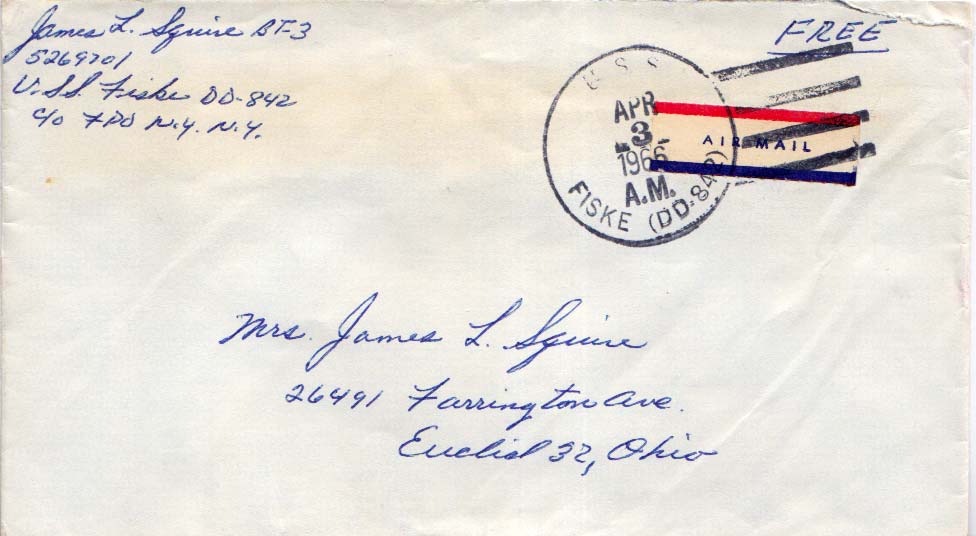 James L. Squire BT-3
5269701
U.S.S. Fiske DD-842
c/o FPO N.Y. N.Y.
FREE
USS
APR
3
1966
A.M.
FISKE (DD-842)
AIR MAIL
Mrs. James L. Squire
26491 Farrington Ave.
Euclid 32, Ohio